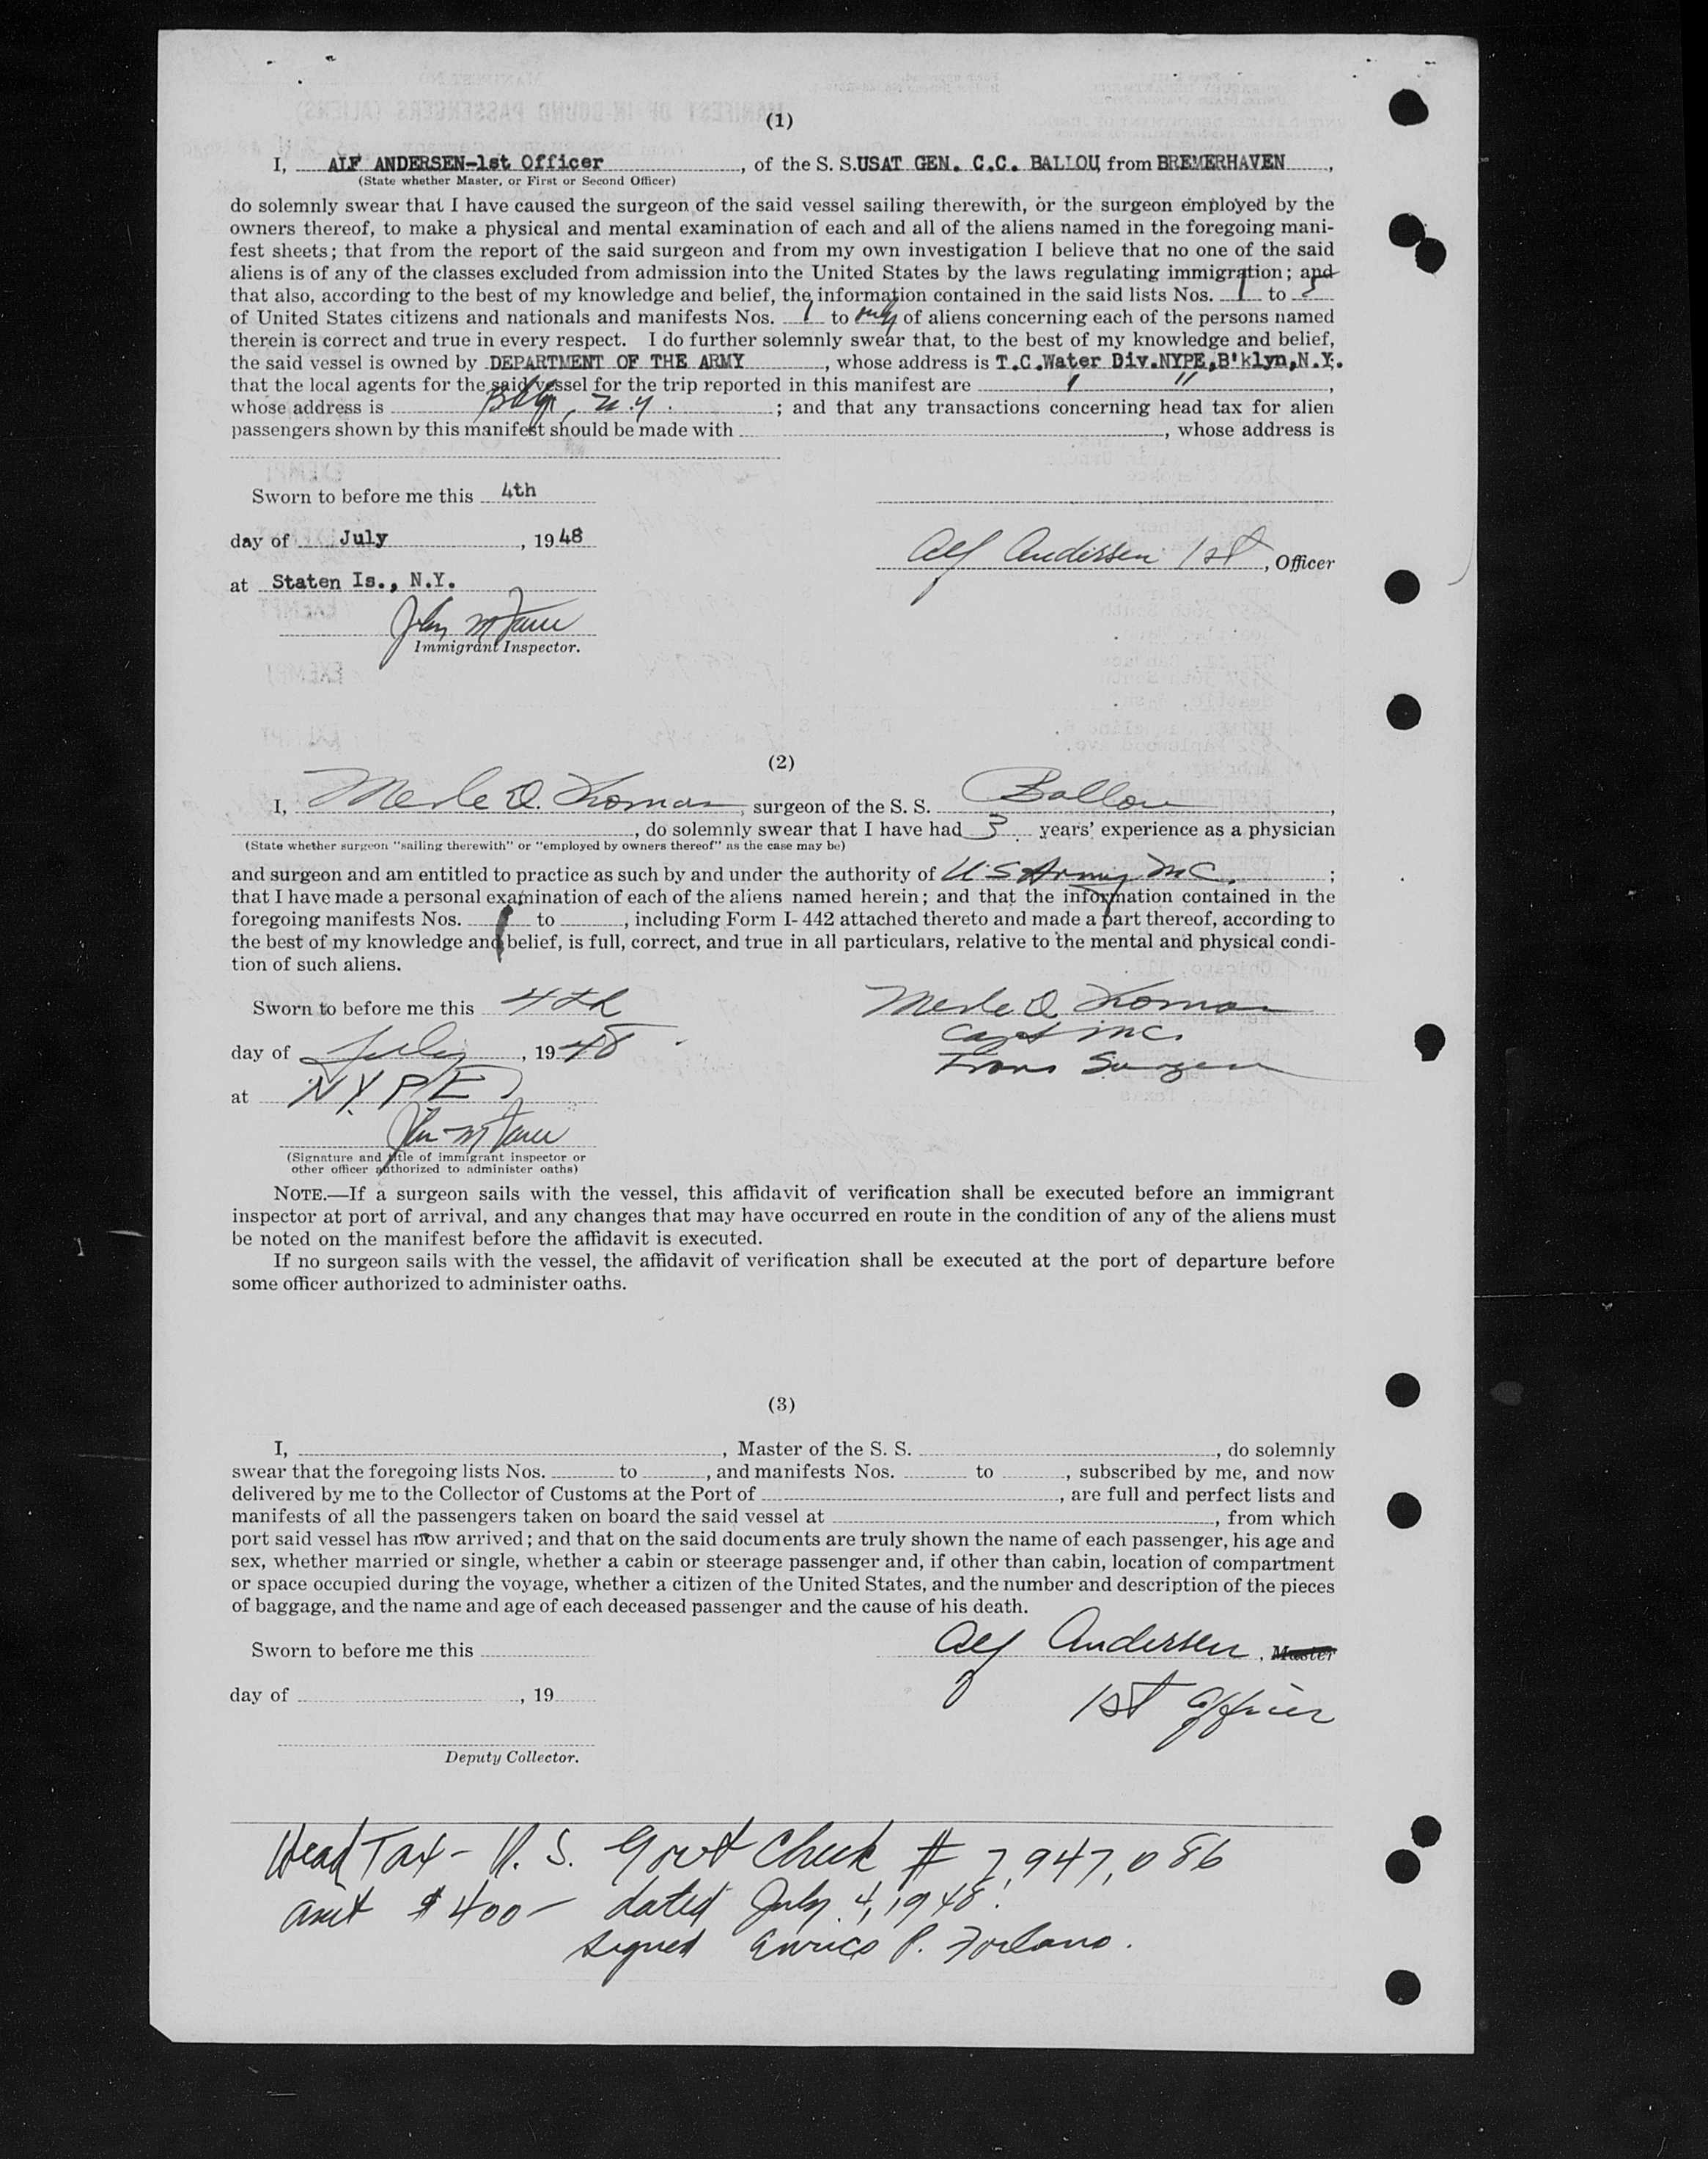 (1)
I, ALF ANDERSEN-1st Officer, of the S. S. USAT GEN. C.C. BALLOU, from BREMERHAVEN,
(State whether Master, or First or Second Officer)
do solemnly swear that I have caused the surgeon of the said vessel sailing therewith, or the surgeon employed by the
owners thereof, to make a physical and mental examination of each and all of the aliens named in the foregoing mani-
fest sheets; that from the report of the said surgeon and from my own investigation I believe that no one of the said
aliens is of any of the classes excluded from admission into the United States by the laws regulating immigration; and
that also, according to the best of my knowledge and belief, the information contained in the said lists Nos. 1 to
of United States citizens and nationals and manifests Nos. 1 to only of aliens concerning each of the persons named
therein is correct and true in every respect. I do further solemnly swear that, to the best of my knowledge and belief,
the said vessel is owned by DEPARTMENT OF THE ARMY, whose address is T.C.Water Div.NYPE,B'klyn,N.Y.
that the local agents for the said vessel for the trip reported in this manifest are " ,
whose address is Bklyn, N.Y. ; and that any transactions concerning head tax for alien
passengers shown by this manifest should be made with , whose address is
Sworn to before me this 4th
day of July, 1948
Alf Andersen 1st, Officer
at Staten Is., N.Y.
Immigrant Inspector.
(2)
I, Merle D. Thomas, surgeon of the S. S. Ballou,
, do solemnly swear that I have had 3 years' experience as a physician
(State whether surgeon "sailing therewith" or "employed by owners thereof" as the case may be)
and surgeon and am entitled to practice as such by and under the authority of U S Army M C. ;
that I have made a personal examination of each of the aliens named herein; and that the information contained in the
foregoing manifests Nos. 1 to , including Form I-442 attached thereto and made a part thereof, according to
the best of my knowledge and belief, is full, correct, and true in all particulars, relative to the mental and physical condi-
tion of such aliens.
Sworn to before me this 4th
Merle D Thomas
Capt MC.
day of July, 1948
Trans Surgeon
at N.Y.P.E
(Signature and title of immigrant inspector or
other officer authorized to administer oaths)
NOTE.—If a surgeon sails with the vessel, this affidavit of verification shall be executed before an immigrant
inspector at port of arrival, and any changes that may have occurred en route in the condition of any of the aliens must
be noted on the manifest before the affidavit is executed.
If no surgeon sails with the vessel, the affidavit of verification shall be executed at the port of departure before
some officer authorized to administer oaths.
(3)
I, , Master of the S. S. , do solemnly
swear that the foregoing lists Nos. to , and manifests Nos. to , subscribed by me, and now
delivered by me to the Collector of Customs at the Port of , are full and perfect lists and
manifests of all the passengers taken on board the said vessel at , from which
port said vessel has now arrived; and that on the said documents are truly shown the name of each passenger, his age and
sex, whether married or single, whether a cabin or steerage passenger and, if other than cabin, location of compartment
or space occupied during the voyage, whether a citizen of the United States, and the number and description of the pieces
of baggage, and the name and age of each deceased passenger and the cause of his death.
Sworn to before me this
Alf Andersen, Master
day of , 19
1st Officer
Deputy Collector.
Head Tax - U. S. Govt Check # 7,947,086
amt $400- dated July 4, 1948.
signed Enrico P. Forlano.